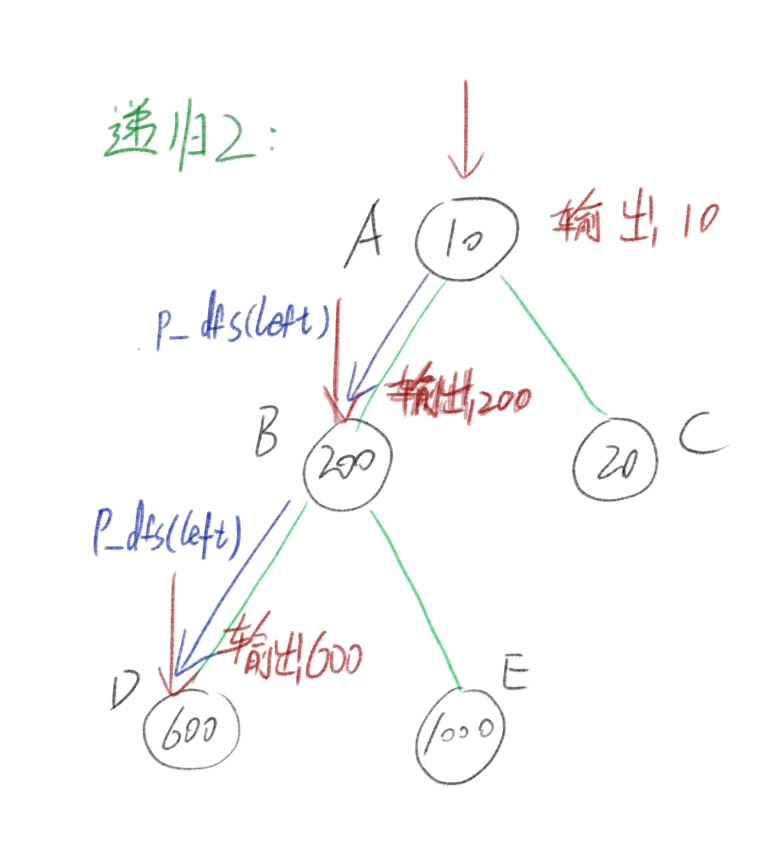 递归2:
A
10
输出,10
P_dfs(left)
输出,200
B
200
20
C
P_dfs(left)
输出,600
D
600
E
1000